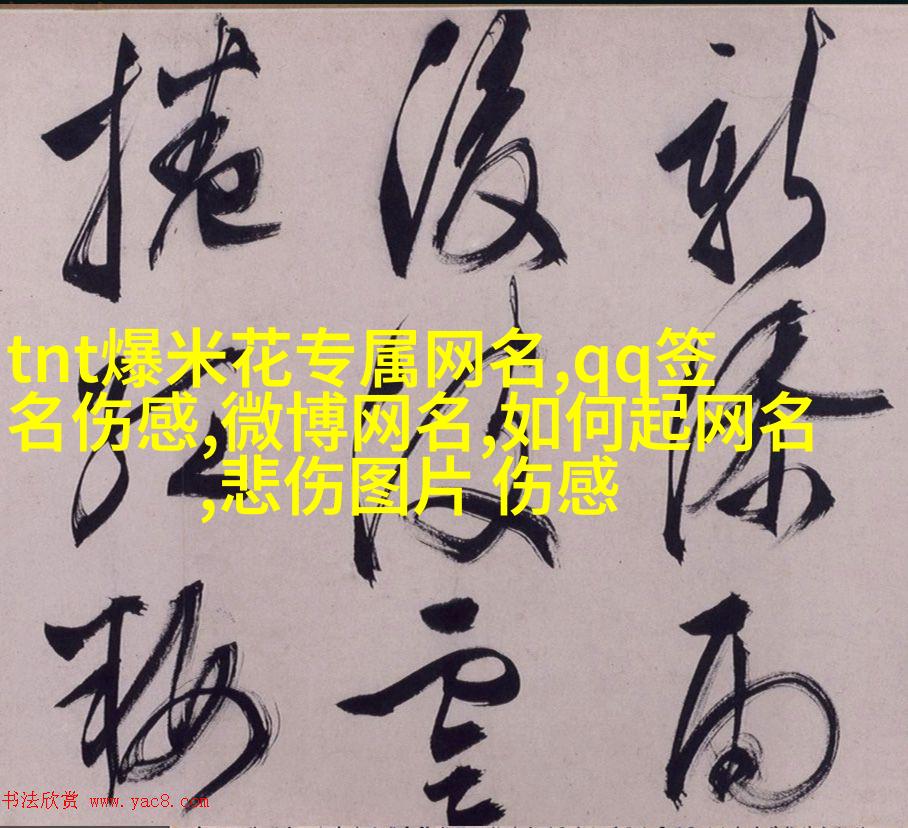 新添雨
後波雲
捲
tnt爆米花专属网名,qq签
名伤感,微博网名,如何起网名
,悲伤图片 伤感
书法欣赏 www.yac8.com